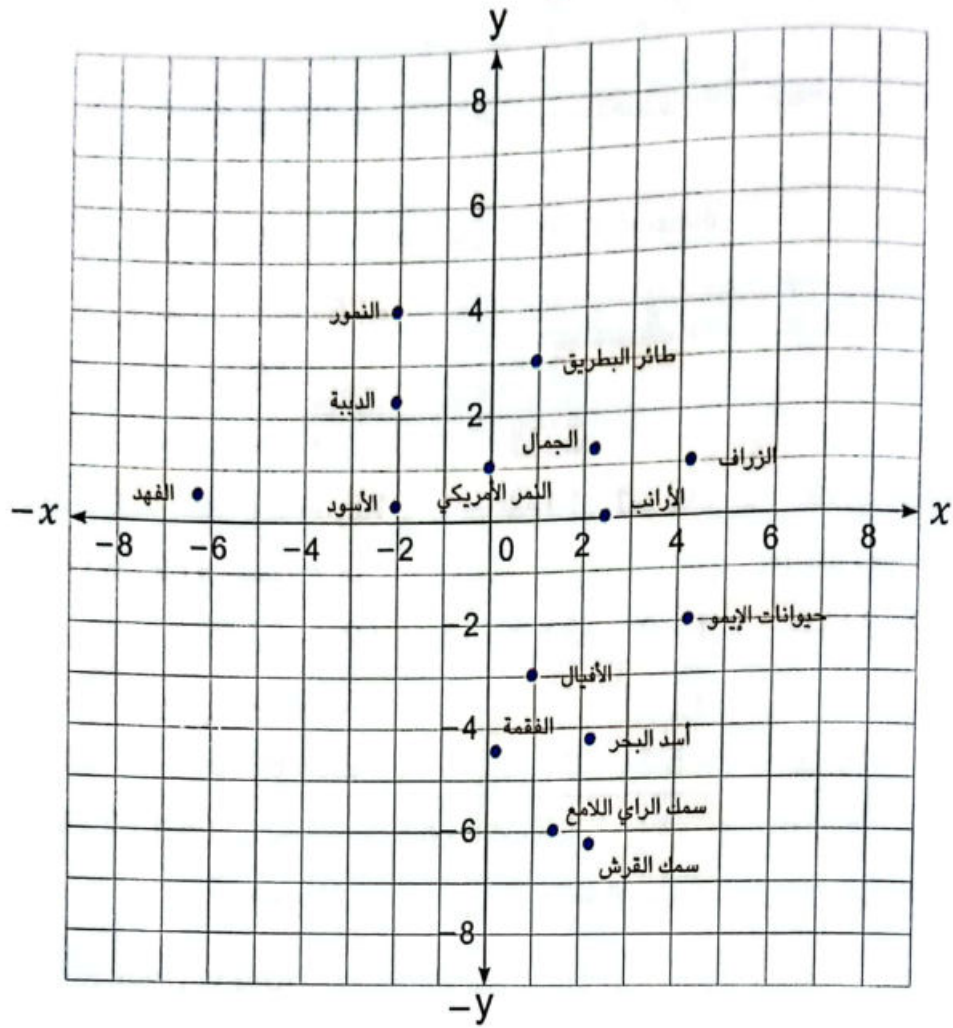 y
8
6
النمور
4
طائر البطريق
الديبة
2
الجمال
الزراف
الفهد
الأسود
النمر الأمريكي
الأرانب
−x
x
−8 −6 −4 −2 0 2 4 6 8
−2
حيوانات الإيمو
الأفيال
−4
الفقمة
أسد البحر
سمك الراي اللامع
−6
سمك القرش
−8
−y